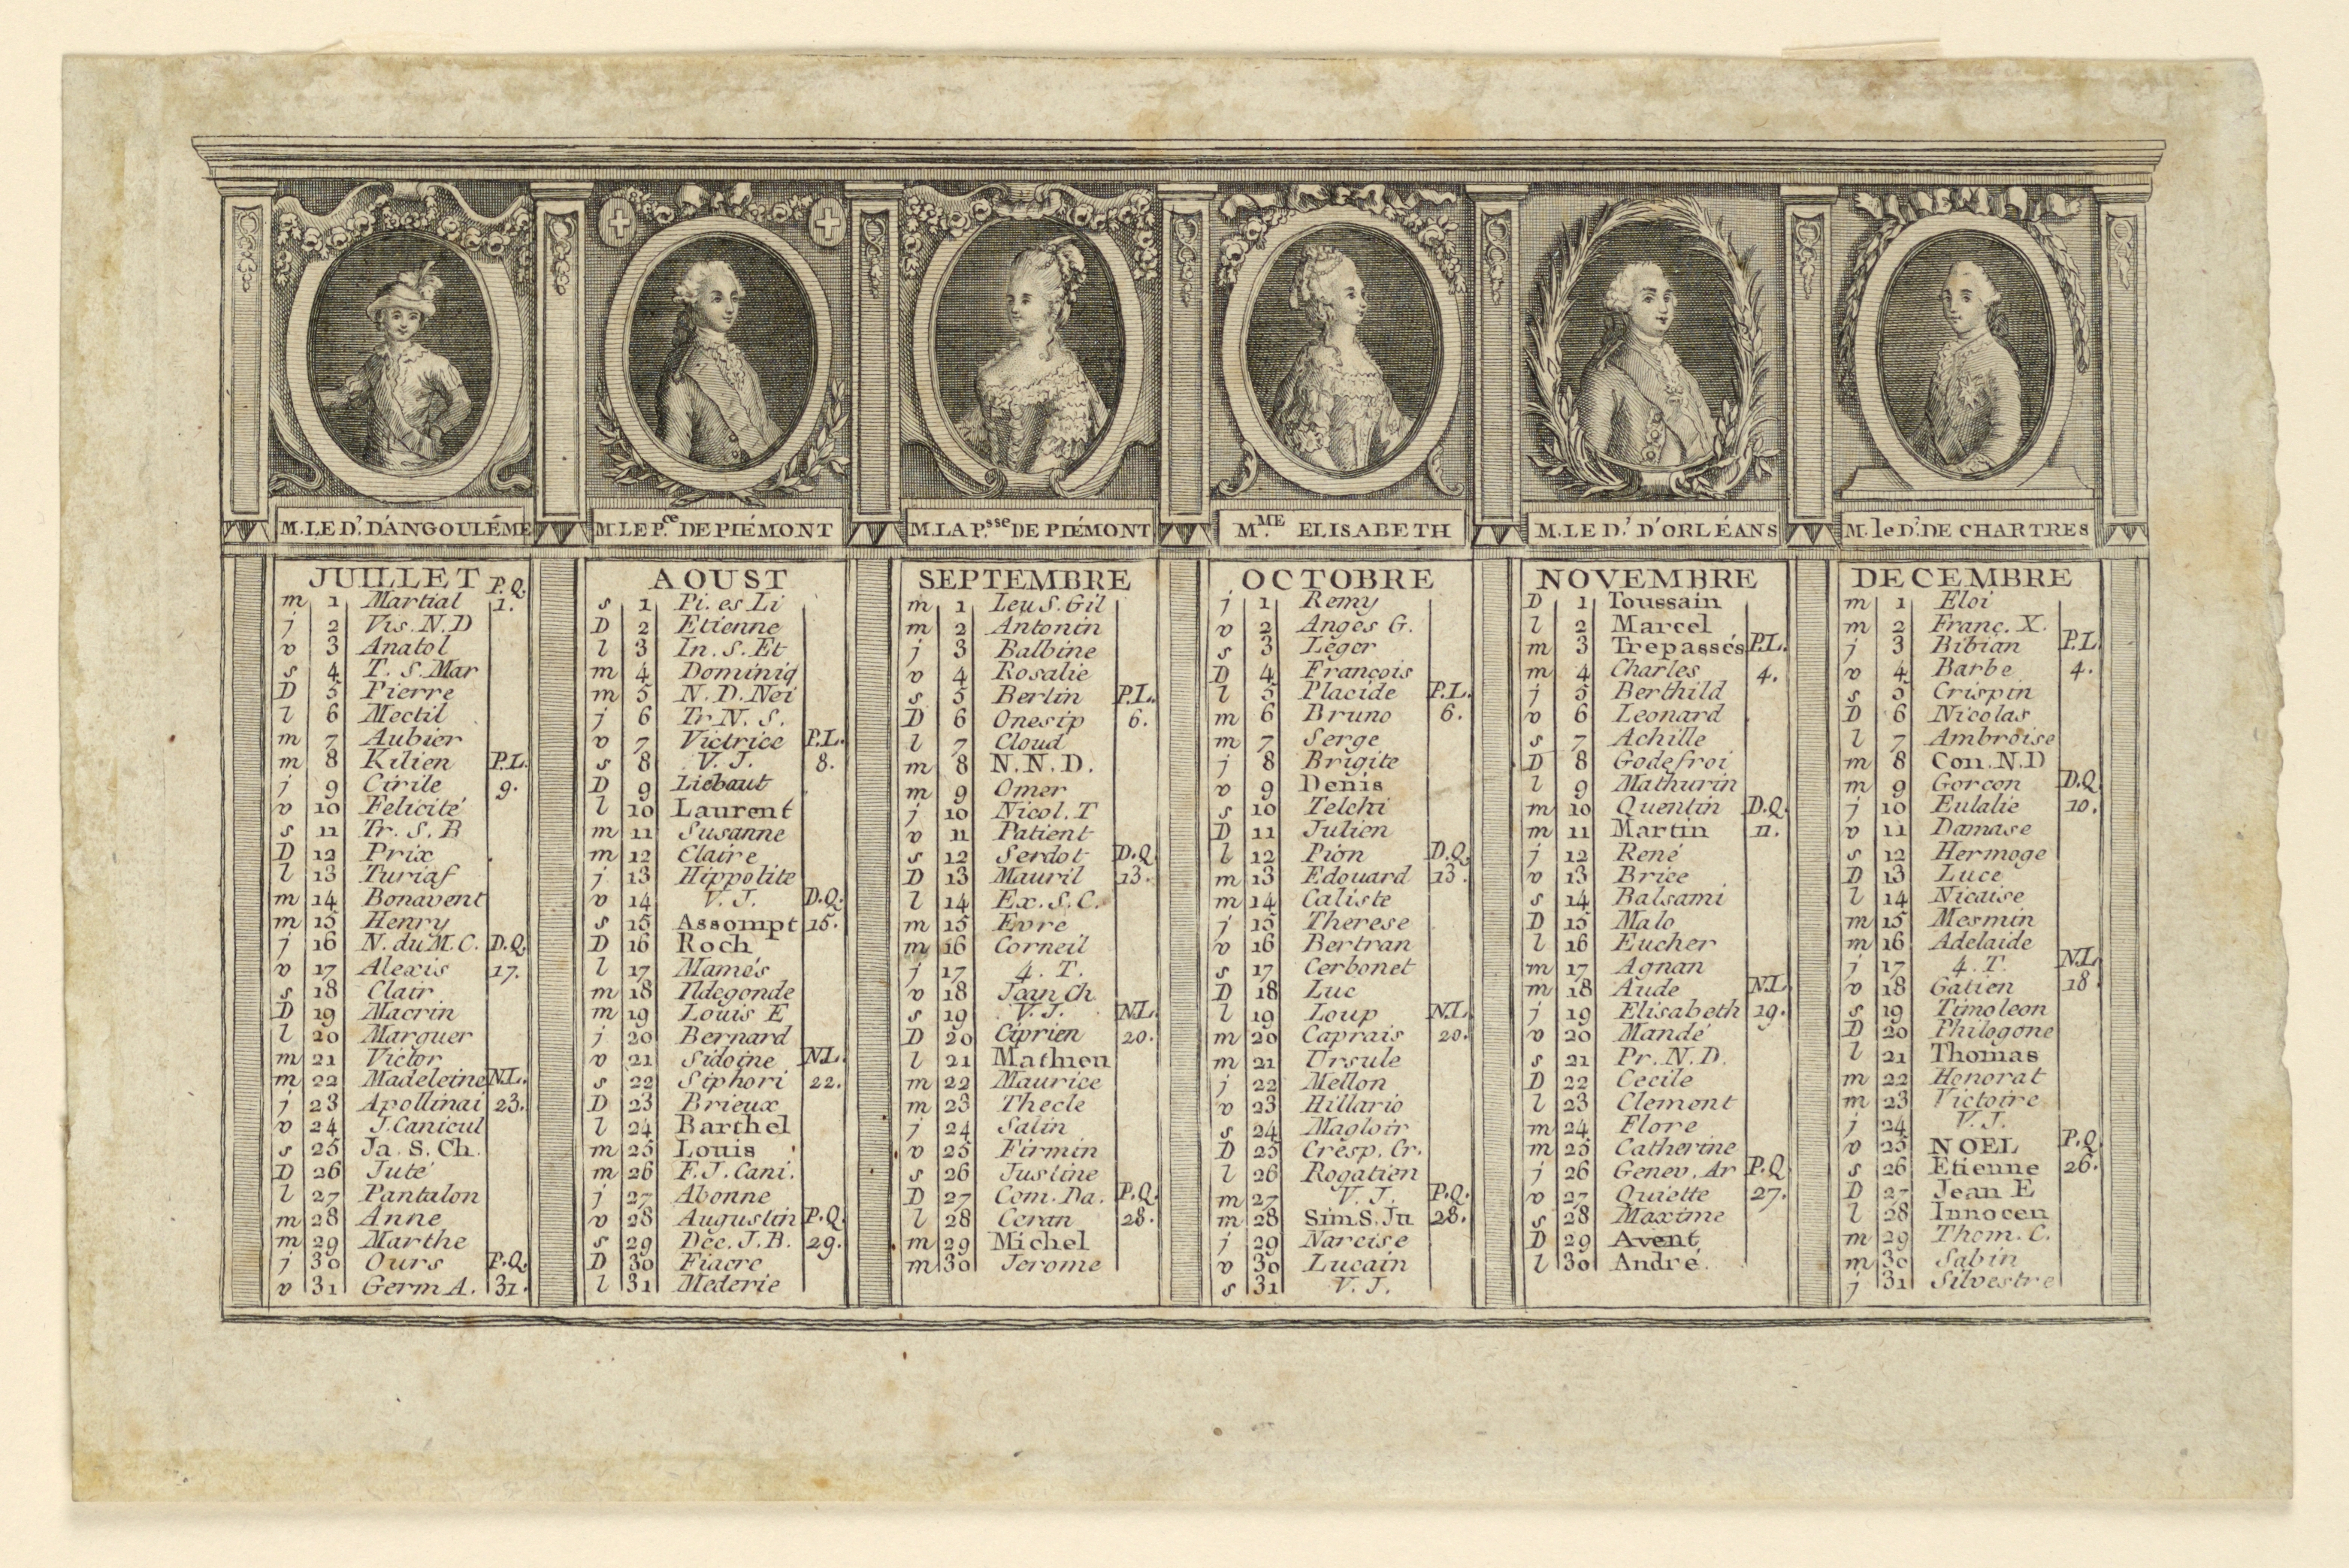 M. LE D.ʳ D'ANGOULÉME
JUILLET P.Q.
m 1 Martial 1.
j 2 Vis. N. D
v 3 Anatol
s 4 T. S. Mar
D 5 Pierre
l 6 Mectil
m 7 Aubier
m 8 Kilien P.L.
j 9 Cirile 9.
v 10 Felicité
s 11 Tr. S. B
D 12 Prix
l 13 Turiaf
m 14 Bonavent
m 15 Henry
j 16 N. du M. C. D.Q.
v 17 Alexis 17.
s 18 Clair
D 19 Macrin
l 20 Marguer
m 21 Victor
m 22 Madeleine N.L.
j 23 Apollinai 23.
v 24 J. Canicul
s 25 Ja. S. Ch.
D 26 Juté
l 27 Pantalon
m 28 Anne
m 29 Marthe
j 30 Ours P.Q.
v 31 Germ A. 31.
M. LE P.ce DE PIÉMONT
AOUST
s 1 Pi. es Li
D 2 Etienne
l 3 In. S. Et
m 4 Dominiq
m 5 N. D. Nei
j 6 Tr N. S.
v 7 Victrice P.L.
s 8 V. J. 8.
D 9 Liébaut
l 10 Laurent
m 11 Susanne
m 12 Claire
j 13 Hippolite
v 14 V. J. D.Q.
s 15 Assompt 15.
D 16 Roch
l 17 Mamés
m 18 Ildegonde
m 19 Louis E
j 20 Bernard
v 21 Sidoine N.L.
s 22 Siphori 22.
D 23 Brieux
l 24 Barthel
m 25 Louis
m 26 F. J. Cani.
j 27 Abonne
v 28 Augustin P.Q.
s 29 Dec. J. B. 29.
D 30 Fiacre
l 31 Mederie
M. LA P.sse DE PIÉMONT
SEPTEMBRE
m 1 Leu S. Gil
m 2 Antonin
j 3 Balbine
v 4 Rosalie
s 5 Berlin P.L.
D 6 Onesip 6.
l 7 Cloud
m 8 N. N. D.
m 9 Omer
j 10 Nicol. T
v 11 Patient
s 12 Serdot D.Q.
D 13 Mauril 13.
l 14 Ex. S. C.
m 15 Evre
m 16 Corneil
j 17 4. T.
v 18 Jean Ch
s 19 V. J. N.L.
D 20 Ciprien 20.
l 21 Mathieu
m 22 Maurice
m 23 Thecle
j 24 Salin
v 25 Firmin
s 26 Justine
D 27 Com. Da. P.Q.
l 28 Ceran 28.
m 29 Michel
m 30 Jerome
M.ME ELISABETH
OCTOBRE
j 1 Remy
v 2 Anges G.
s 3 Léger
D 4 François
l 5 Placide P.L.
m 6 Bruno 6.
m 7 Serge
j 8 Brigite
v 9 Denis
s 10 Telchi
D 11 Julien
l 12 Pion D.Q.
m 13 Edouard 13.
m 14 Caliste
j 15 Therese
v 16 Bertran
s 17 Cerbonet
D 18 Luc
l 19 Loup N.L.
m 20 Caprais 20.
m 21 Ursule
j 22 Mellon
v 23 Hillario
s 24 Magloir
D 25 Crêsp. Cr.
l 26 Rogatien
m 27 V. J. P.Q.
m 28 Sim S. Ju 28.
j 29 Narcise
v 30 Lucain
s 31 V. J.
M. LE D.ʳ D'ORLÉANS
NOVEMBRE
D 1 Toussain
l 2 Marcel
m 3 Trepassés P.L.
m 4 Charles 4.
j 5 Berthild
v 6 Leonard
s 7 Achille
D 8 Godefroi
l 9 Mathurin
m 10 Quentin D.Q.
m 11 Martin 11.
j 12 René
v 13 Brice
s 14 Balsami
D 15 Malo
l 16 Eucher
m 17 Agnan
m 18 Aude N.L.
j 19 Elisabeth 19.
v 20 Mandé
s 21 Pr. N. D.
D 22 Cecile
l 23 Clement
m 24 Flore
m 25 Catherine
j 26 Genev. Ar P.Q.
v 27 Quiette 27.
s 28 Maxime
D 29 Avent
l 30 André.
M. le D.ʳ DE CHARTRES
DECEMBRE
m 1 Eloi
m 2 Franç. X.
j 3 Bibian P.L.
v 4 Barbe 4.
s 5 Crispin
D 6 Nicolas
l 7 Ambroise
m 8 Con. N. D
m 9 Gorcon D.Q.
j 10 Eulalie 10.
v 11 Damase
s 12 Hermoge
D 13 Luce
l 14 Nicaise
m 15 Mesmin
m 16 Adelaide
j 17 4. T. N.L.
v 18 Gatien 18.
s 19 Timoleon
D 20 Philogone
l 21 Thomas
m 22 Honorat
m 23 Victoire
j 24 V. J.
v 25 NOEL P.Q.
s 26 Etienne 26.
D 27 Jean E
l 28 Innocen
m 29 Thom. C.
m 30 Sabin
j 31 Silvestre